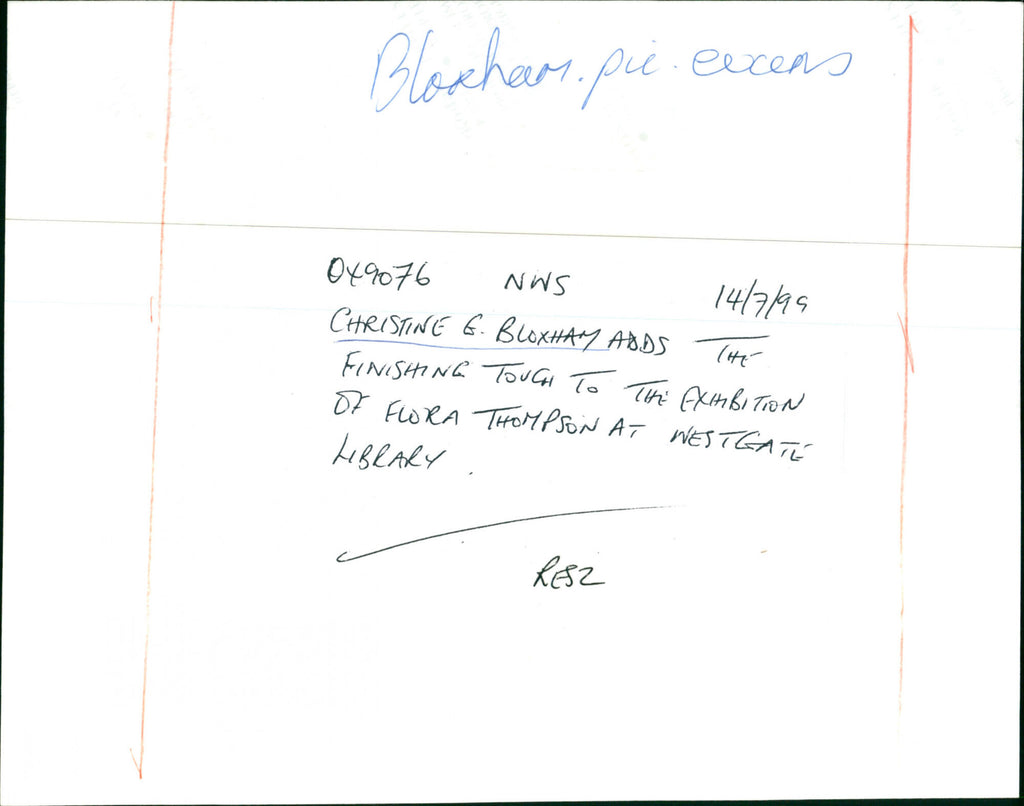 Bloxham. pic.
OX9076 NWS 14/7/99
CHRISTINE G. BLOXHAM ADDS THE
FINISHING TOUCH TO THE EXHIBITION
OF FLORA THOMPSON AT WESTGATE
LIBRARY.
RESZ